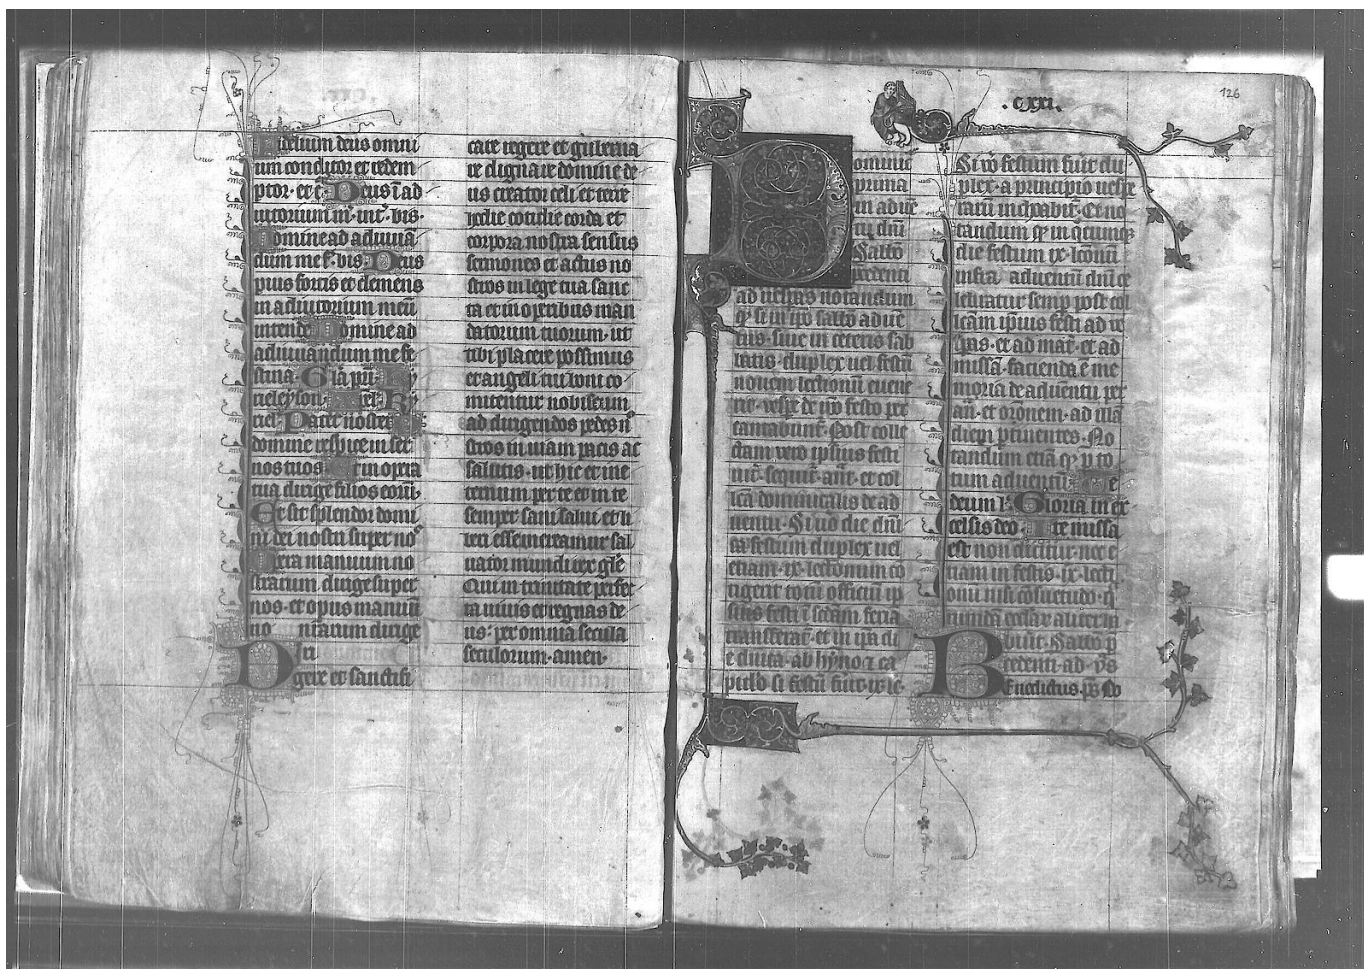 fidelium deus omni
um conditor et redem
ptor. et c̄. Deus ī ad
iutorium m̄. int̄. bis.
Domine ad adiuuā
dum me f̄. bis. Deus
pius fortis et clemens
in adiutorium meū
intende. Domine ad
adiuuandum me fe
stina. Glā pr̄i. Ky
rieleyson. xp̄el. Ky
riel. Pater noster
domine respice in ser
uos tuos. Et in opera
tua dirige filios eorū.
Et sit splendor domi
ni dei nostri super nos
Opera manuum no
strarum dirige super
nos. et opus manuū
no strarum dirige
Diri
gere et sanctifi
care regere et guberna
re dignare domine de
us creator celi et terre
hodie cotidie corda et
corpora nostra sensus
sermones et actus no
stros in lege tua sanc
ta et in operibus man
datorum tuorum. ut
tibi placere possimus
et angeli tui boni co
mitentur nobiscum
ad dirigendos pedes n̄
stros in uiam pacis ac
salutis. ut hic et ine
ternum per te et in te
semper sani salui et li
beri esse mereamur sal
uator mundi rex glē
Qui in trinitate perfec
ta uiuis et regnas de
us. per omnia secula
seculorum. amen.
.cxxi.
126
Dominic
prima
in aduē
tu dn̄i
Sabb̄o
precedenti
ad uesp̄as notandum
qͥ si in ip̄o sabb̄o adue
tus. siue in ceteris sab
batis. duplex uel festū
nouem lectionū euene
rit. uesp̄e de ip̄o festo per
cantabunt̄. Post colle
ctam vero ipsius festi
inc̄. sequit̄. an̄. et col
lc̄a dominicalis de ad
uentu. Si uō die dn̄i
ca festum duplex uel
etiam .ix. lectionum cō
tigerit totū officiū ip
sius festi ī sc̄dam feriā
transferat̄. et in ip̄a di
e dn̄ica. ab hȳno ⁊ ca
pitulo si festū fuit ix lc̄
Si uō festum fuit̄ du
plex. a principio uesp̄e
rarū inchoabit̄. Et no
tandum qͥ in qͦcumqꝫ
die festum ix. lc̄onū
infra aduentū dn̄i ce
lebratur semp̄ post col
lc̄am ip̄ius festi ad ve
sp̄as. et ad mat̄. et ad
missā. facienda ē me
moria de aduentu per
an̄. et or̄onem. ad mā
diei p̄tinentes. No
tandum etiā qͥ p̄ to
tum aduentū. Te
deum l̄. Gloria in ex
celsis deo. Ite missa
est non dicitur. nec e
tiam in festis .ix. lecti
onū nisi cōsuetudo. q
rundā eccl̄ar̄ aliter in
buit̄. Sabb̄o p̄
cedenti. ad. v̄s
Benedictus. p̄s.